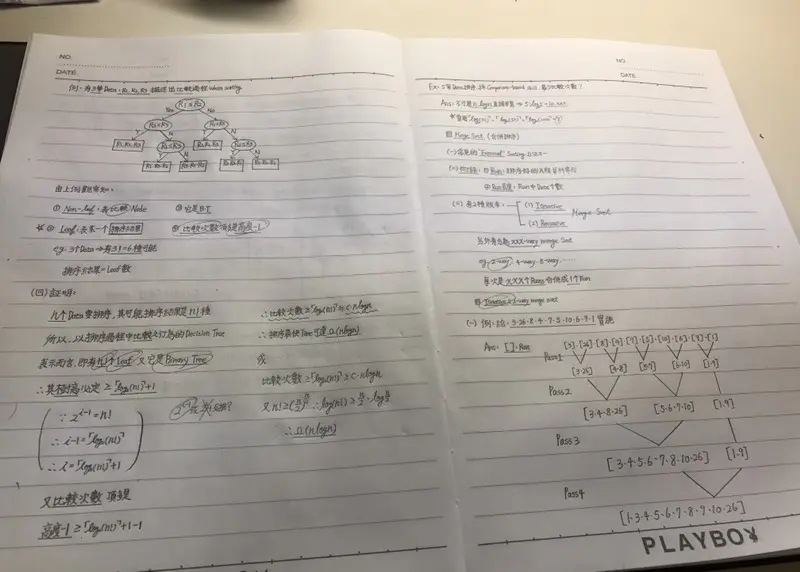 NO.
DATE
例：有3筆Data：R1, R2, R3 描述出比較過程 when sorting
R1≤R2
Yes
No
R2≤R3
R1≤R3
Y
N
Y
N
R1.R2.R3
R1≤R3
R2.R1.R3
R2≤R3
Y
N
Y
N
R1.R3.R2
R3.R1.R2
R2.R3.R1
R3.R2.R1
由上例觀察知：
① Non-leaf：表比較Node
③ 它是B.T.
☆② Leaf：表示一個排序結果
④ 比較次數 高度-1
eg. 3個Data ⇒ 有3!=6種可能
排序結果=Leaf數
(四) 証明：
n個Data要排序，其可能排序結果是n!種
所以，以排序過程中比較之行為的Decision Tree
表示而言，即有n!個Leaf，又它是Binary Tree
∴其樹高必定 ≥ ⌈log₂(n!)⌉+1
∵ 2^(i-1) = n!
∴ i-1 = ⌈log₂(n!)⌉
∴ i = ⌈log₂(n!)⌉+1
又比較次數
高度-1 ≥ ⌈log₂(n!)⌉+1-1
∴比較次數 ≥ ⌈log₂(n!)⌉ ≈ c·nlogn
∴排序最快Time 是Ω(nlogn)
或
比較次數 ≥ ⌈log₂(n!)⌉ ≥ c·nlogn
又 n! ≥ (n/2)^(n/2) ∴ log(n!) ≥ n/2·log n/2
∴ Ω(nlogn)
NO
DATE
Ex：5筆Data排序，採Comparison-based skill，最少比較次數？
Merge Sort (合併排序)
(一) 常見的 "External" Sorting 方法之一
① Run：
② Run長度：Run中Data個數
有2種版本：
(1) Iterative
(2) Recursive
Merge Sort
另外有種 XXX-way merge sort
eg. 2-way，4-way，8-way，……
每次是XXX個Runs合併成1個Run
Iterative 2-way merge sort
(一) 例：給：3.26.8.4.7.5.10.6.9.1 實施
Ans：[ ]：Run
[3] [26] [8] [4] [7] [5] [10] [6] [9] [1]
Pass1
[3.26] [4.8] [5.7] [6.10] [1.9]
Pass2
[3.4.8.26] [5.6.7.10] [1.9]
Pass3
[3.4.5.6.7.8.10.26] [1.9]
Pass4
[1.3.4.5.6.7.8.9.10.26]
PLAYBOY